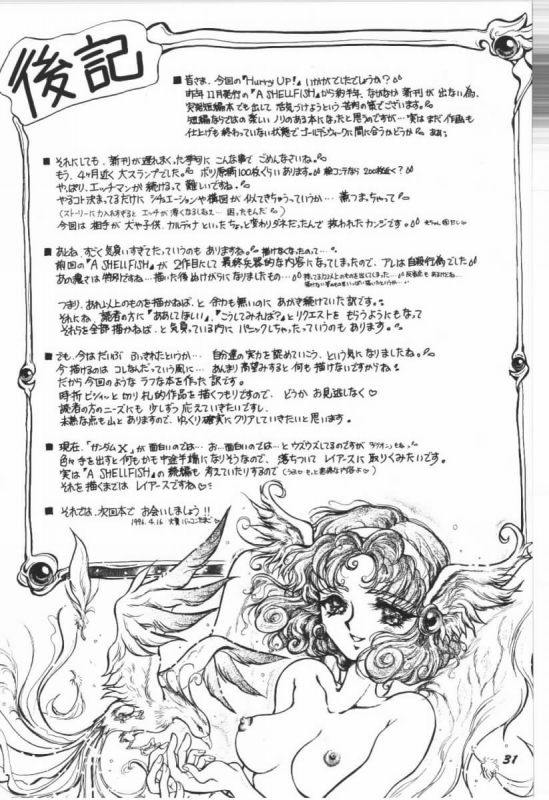 後記
■皆さま、今回の『Hurry UP!』いかがでしたでしょうか?
昨年11月発行の『A SHELLFISH』から約半年、なかなか新刊が出ない為、
実験短編本でも出して活気づけようという苦肉の策でございます。
短編ならではの楽しいノリのある本になったと思うのですが…実はまだ作画も
仕上げも終わっていない状態でゴールデンウィークに間に合うかどうか
■それにしても、新刊が遅れまくった季句にこんな事でごめんなさいね。
もう、4ヶ月近く大スランプでした。ボツ原稿100枚ぐらいあります。絵コンテなら200枚近く?
やっぱり、エッチマンガ続けるって難しいですね。
やるコト決まってるだけにシチュエーションや構図が似てきちゃうっていうか…
(ストーリーに力入れすぎるとエッチが薄くなるしねえ…困ったもんだ)
今回は相手が犬や子供、カルディナといったちょっと変わりダネだったんで救われたカンジです。
■あとね、すごく気負いすぎてたっていうのもありますね。描けなくなったのって…
前回の『A SHELLFISH』が2作目にして最終兵器的な内容になってしまったので、アレは自殺行為でした
あの厚さは特別ですね…描いた後ぬけがらになりましたもの…
つまり、あれ以上のものを描かねばと余力も無いのにあがき続けていた訳です。
それにね、読者の方に『ああしてほしい』、『こうしてみれば?』とリクエストをもらうようにもなって
それらを全部描かねば、と気負っている内にパニックしちゃったっていうのもあります。
■でも、今はだいぶふっきれたというか…自分達の実力を認めていこう、という気になりましたね。
今描けるのはコレなんだっていう風に…あんまり高望みすると何も描けないですからね
だから今回のようなラフな本を作った訳です。
時折ビシィッと切り札的作品を描くつもりですので、どうかお見逃しなく♡
読者の方のニーズにも少しずつ応えていきたいですし、
未熟な点も山とありますので、ゆっくり確実にクリアしていきたいと思います。
■現在、「ガンダムX」が面白いのでは…お…面白いのでは…とウズウズしてるのですが
色々手を出すと何もかも中途半端になりそうなので、落ちついてレイアースに取りくみたいです。
実は『A SHELLFISH』の続編も考えていたりするので
それを描くまではレイアースですね♡
■それでは、次回本でお会いしましょう!!
1996.4.16.
37